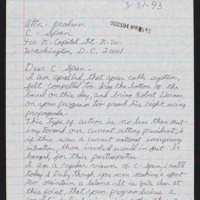 3-31-93
Attn: produm
C-Span
400 N. Capitol St. N.W.
Washington, D.C. 20001
Dear C-Span:
I am appalled, that your call system,
felt compelled to drag the bottom of the
barrel on this day, and bring Robert Dornan
on your program to preach his right wing
propaganda.
This type of action is no less than mu-
tiny toward our current sitting president; &
if this were a current national emergency
situation, those involved would in fact be
hanged, for this participation.
I am a regular viewer of C-Span; until
today I truly thought you were making an effort
to maintain a balance. It is quite clear at
this point, that your programming is